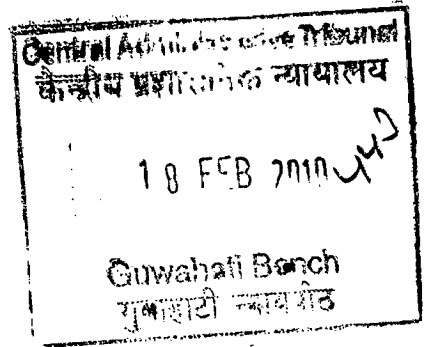 Central Administrative Tribunal
केन्द्रीय प्रशासनिक न्यायालय
18 FEB 2010
Guwahati Bench
गुवाहाटी न्यायपीठ